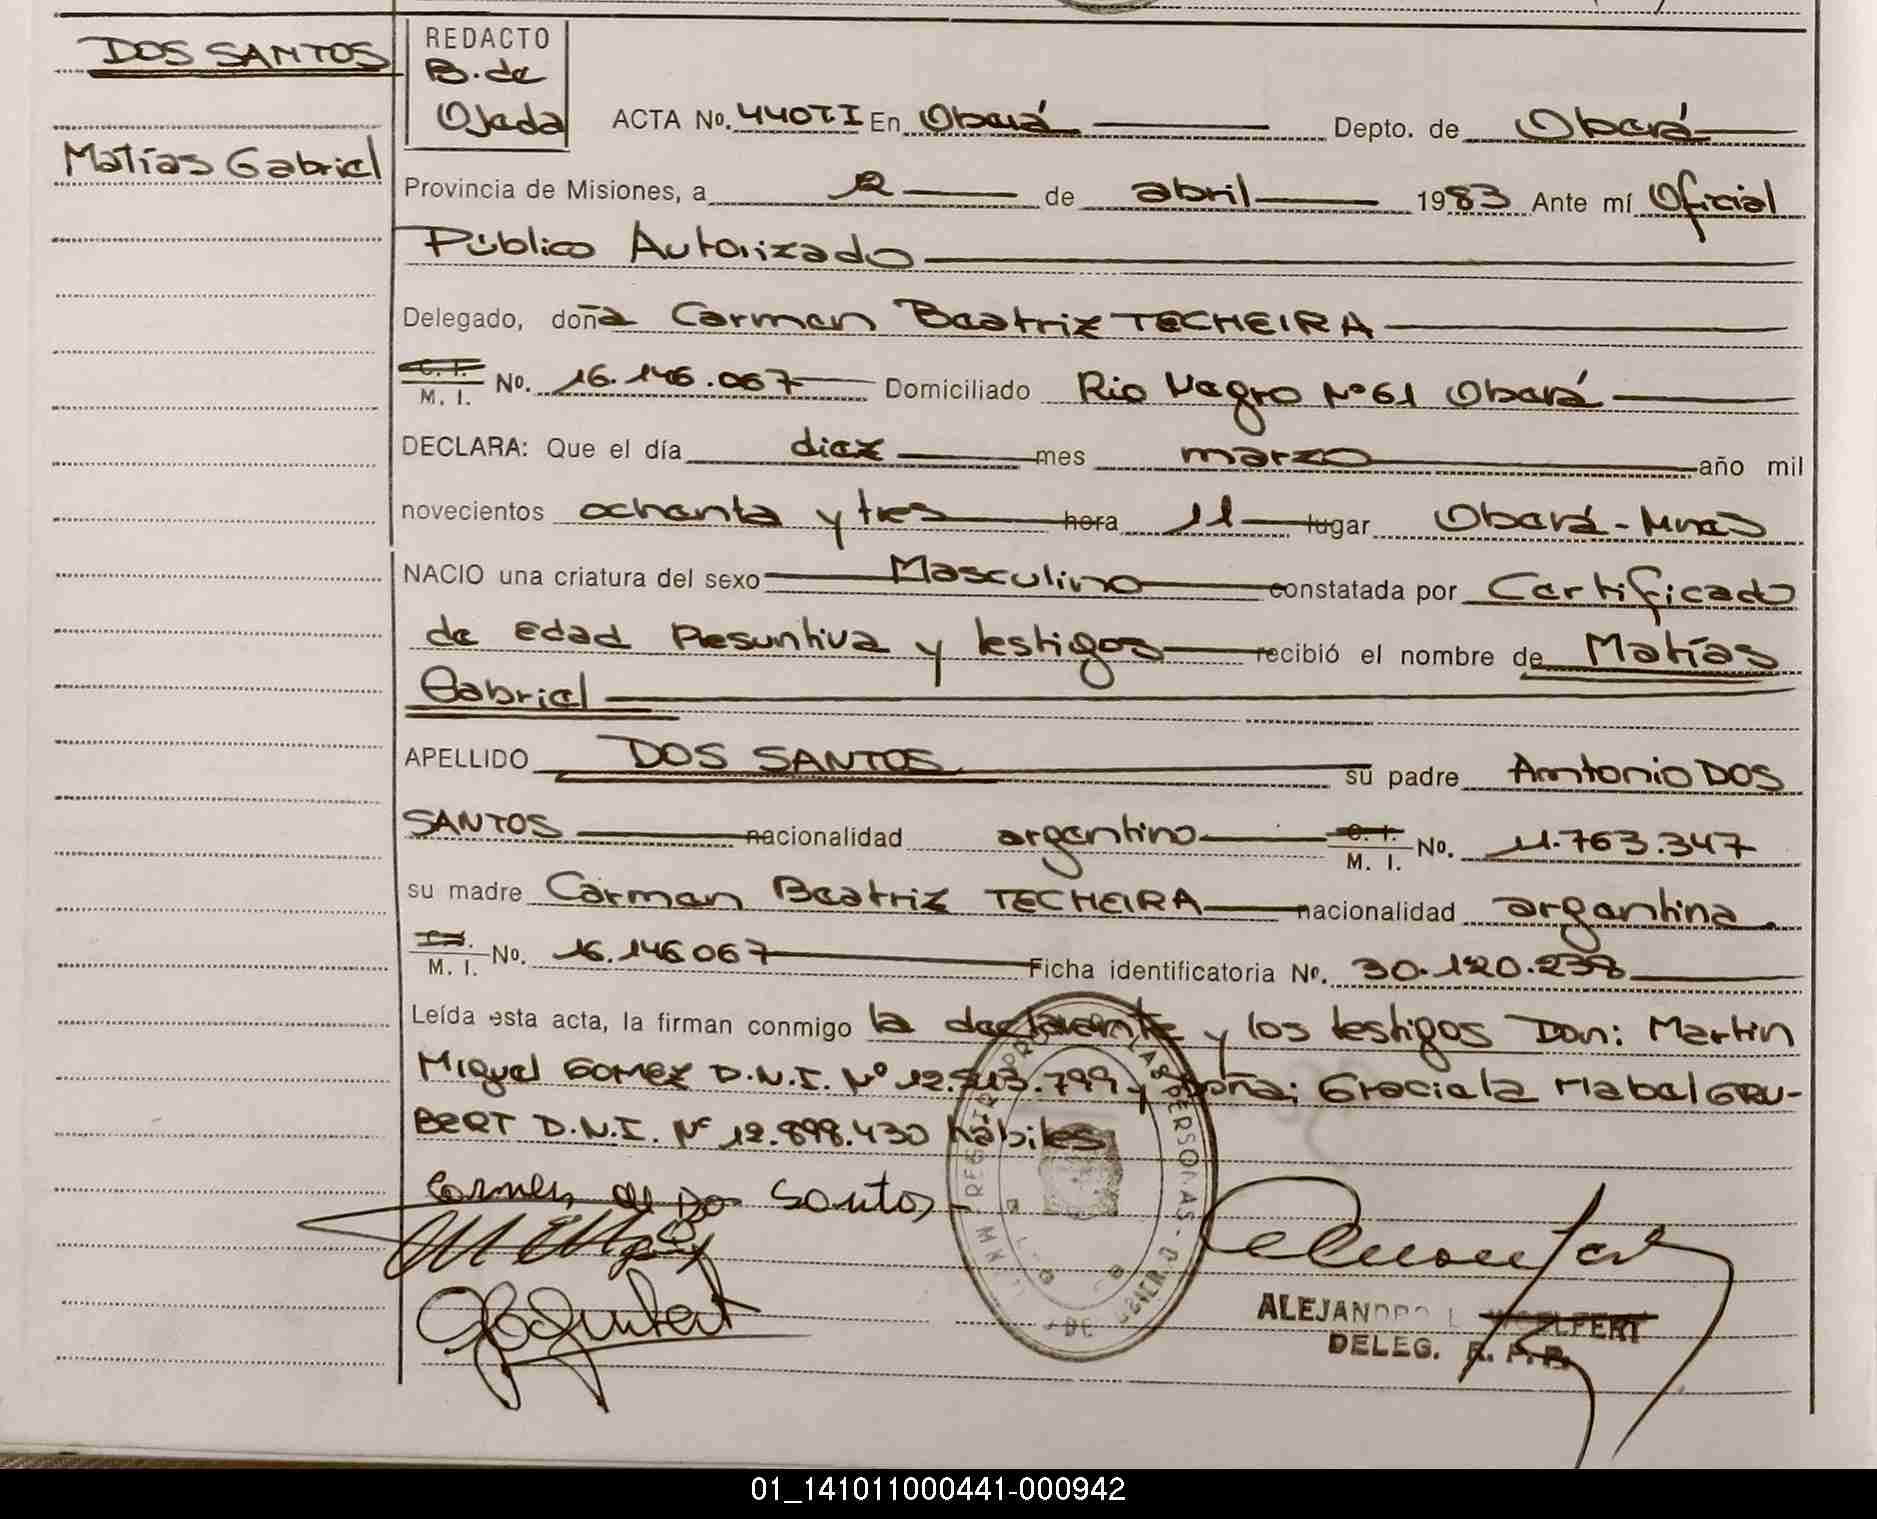 DOS SANTOS
Matías Gabriel
REDACTO
B. de
Ojeda
ACTA No. 440 T.I En Oberá Depto. de Oberá
Provincia de Misiones, a 12 de abril 1983 Ante mí Oficial
Público Autorizado
Delegado, doña Carmen Beatriz TECHEIRA
C. I.
M. I. No. 16.146.067 Domiciliado Rio Negro Nº 61 Oberá
DECLARA: Que el día diez mes marzo año mil
novecientos ochenta y tres hora 11 lugar Oberá - Mnes
NACIO una criatura del sexo Masculino constatada por Certificado
de Edad Presuntiva y testigos recibió el nombre de Matías
Gabriel
APELLIDO DOS SANTOS su padre Antonio DOS
SANTOS nacionalidad argentino C. I.
M. I. No. 11.763.347
su madre Carmen Beatriz TECHEIRA nacionalidad argentina
C. I.
M. I. No. 16.146067 Ficha identificatoria No. 30.120.238
Leída esta acta, la firman conmigo la declarante y los testigos Don: Martin
Miguel GOMEZ D.N.I. Nº 12.513.799 y Doña: Graciela Mabel GRU-
BERT D.N.I. Nº 12.898.430 hábiles
Carmen de Dos Santos
REGISTRO PRO LAS PERSONAS
ALEJANDRO L.
DELEG. R. P. P.
01_141011000441-000942